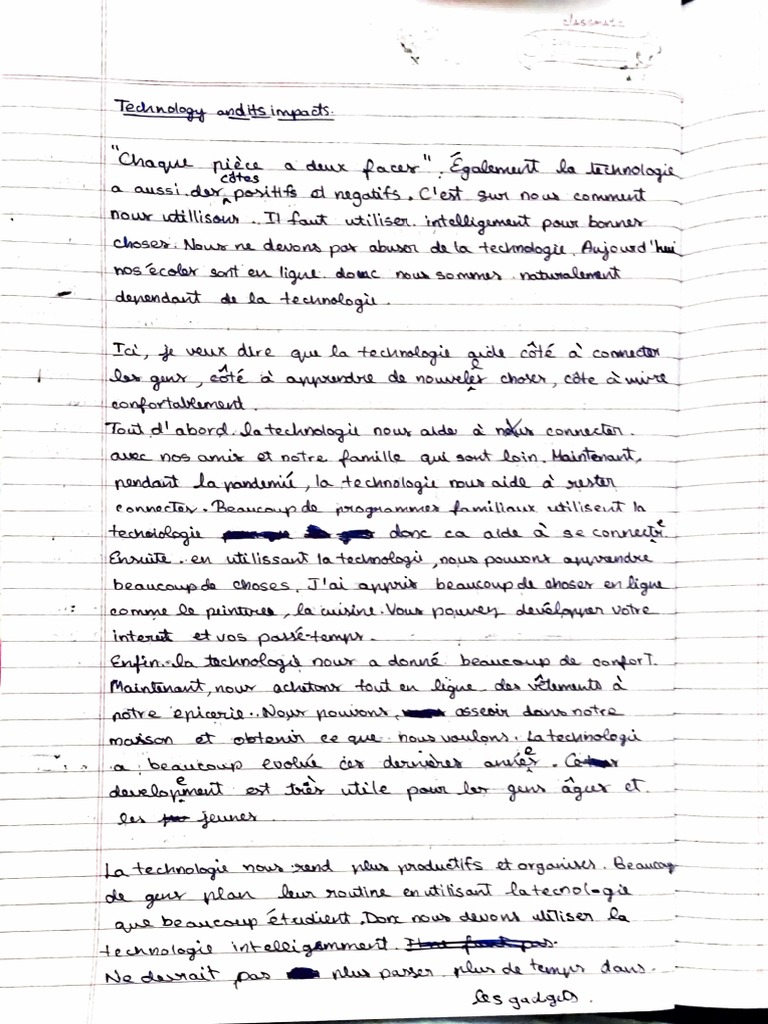 classmate
Technology and its impacts.
"Chaque pièce a deux faces". Également la technologie
côtes
a aussi des positifs et negatifs. C'est sur nous comment
nous utillisons. Il faut utiliser intelligement pour bonnes
choses. Nous ne devons pas abuser de la technologie. Aujourd'hui
nos écoles sont en ligne donc nous sommes naturalement
dependant de la technologie.
Ici, je veux dire que la technologie aide côté à connecter
les gens, côté à apprendre de nouvelles choses, côte à vivre
confortablement.
Tout d'abord. la technologie nous aide à nous connecter.
avec nos amis et notre famille qui sont loin. Maintenant,
pendant la pandemié, la technologie nous aide à rester
connecter. Beaucoup de programmes familiaux utilisent la
techoiologie donc ca aide à se connecter.
Ensuite. en utilissant la technologi, nous pouvons apprendre
beaucoup de choses. J'ai appris beaucoup de choses en ligne
comme le peintures, la cuisine. Vous pouvez developper votre
interet et vos passé-temps.
Enfin. la technologie nous a donné beaucoup de confort.
Maintenant, nous achetons tout en ligne des vêtements à
notre epicerie. Nous pouvons, asseoir dans notre
maison et obtenir ce que nous voulons. La technologi
a beaucoup evolué ces dernières année.
developement est très utile pour les gens âgées et
les jeunes
La technologie nous rend plus productifs et organises. Beaucoup
de gens plan leur routine en utilisant la tecnologie
que beaucoup étudient. Donc nous devons utiliser la
technologie intelligemment.
Ne devrait pas plus passer plus de temps dans
les gadgets.